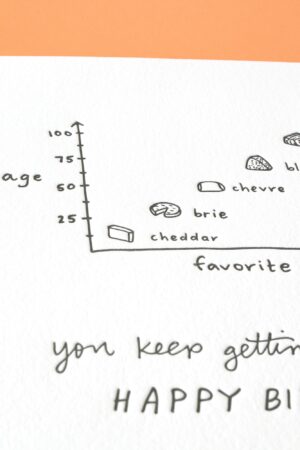 100
75
bl
age
50
chevre
25
brie
cheddar
favorite
you keep gettin
HAPPY BI